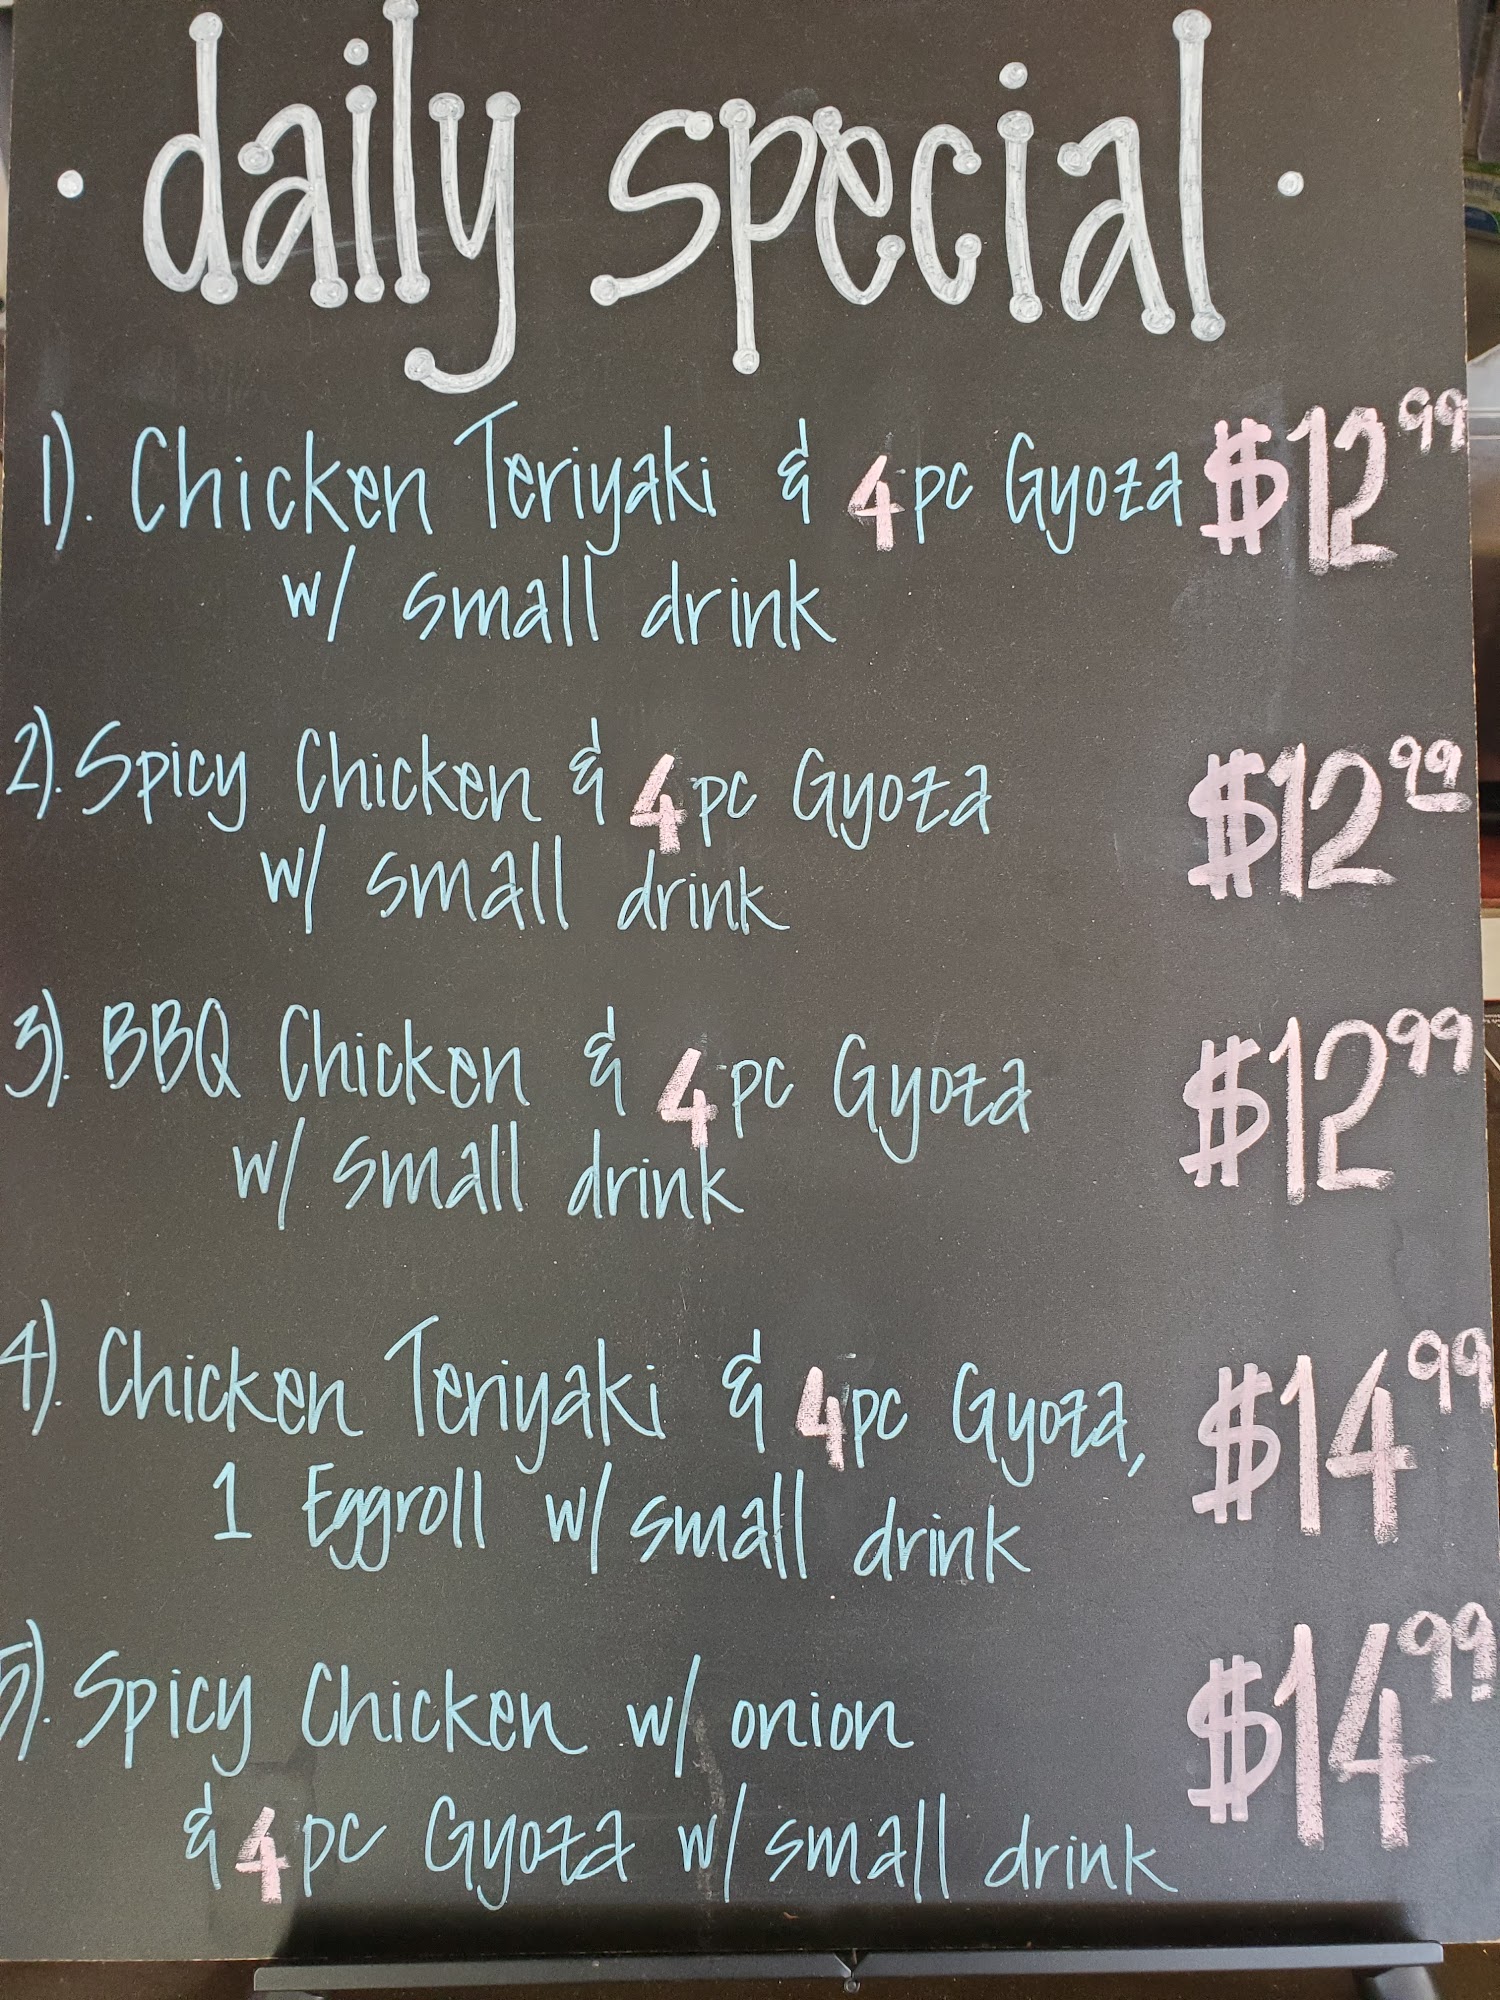 • daily special •
1). Chicken Teriyaki & 4 pc Gyoza $12.99
w/ small drink
2). Spicy Chicken & 4 pc Gyoza $12.99
w/ small drink
3). BBQ Chicken & 4 pc Gyoza $12.99
w/ small drink
4). Chicken Teriyaki & 4 pc Gyoza, $14.99
1 Eggroll w/ small drink
5). Spicy Chicken w/ onion $14.99
& 4 pc Gyoza w/ small drink